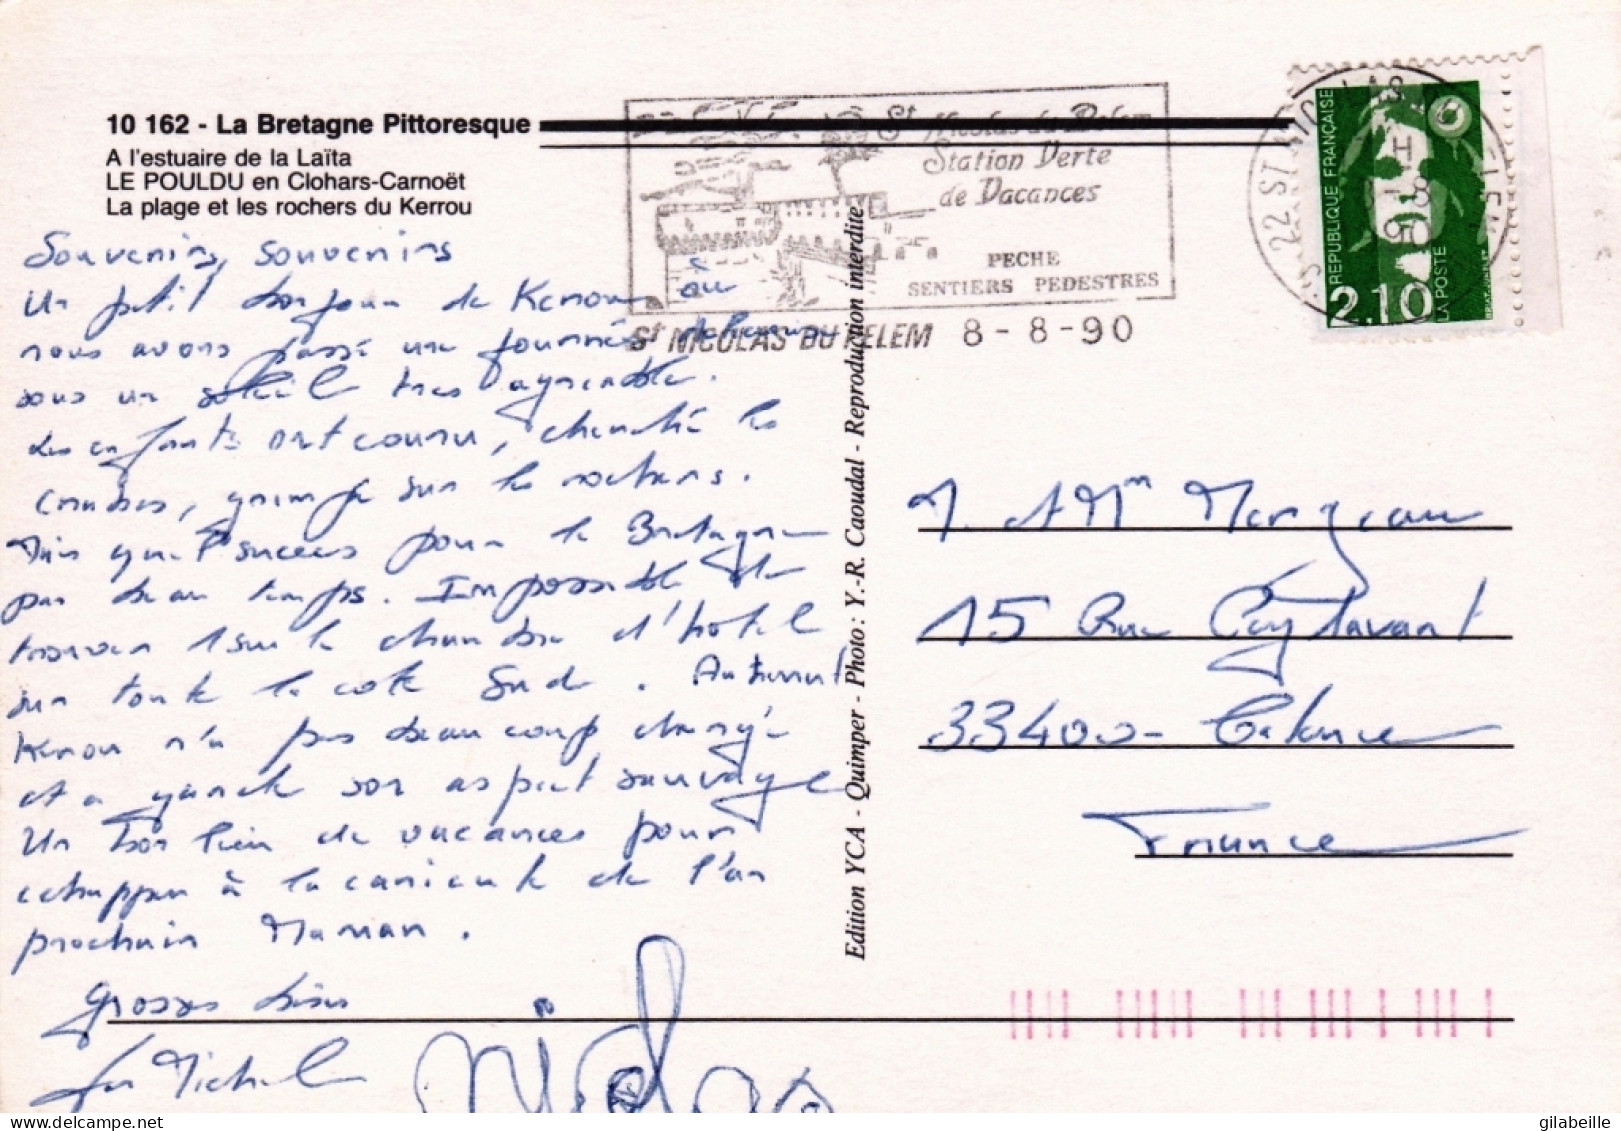 10 162 - La Bretagne Pittoresque
A l'estuaire de la Laïta
LE POULDU en Clohars-Carnoët
La plage et les rochers du Kerrou
St Nicolas du Pelem
Station Verte
de Vacances
PECHE
SENTIERS PEDESTRES
St NICOLAS DU PELEM 8-8-90
22 ST NICOLAS DU PELEM
8-8
90
REPUBLIQUE FRANÇAISE
LA POSTE
2,10
Souvenirs, souvenirs
Un petit bonjour de Kerrou où
nous avons passé une journée
sous un soleil très agréable.
Les enfants ont couru, cherché les
crabes, grimpé sur les rochers.
Mais quel succès pour la Bretagne
par beau temps. Impossible de
trouver 1 seule chambre d'hôtel
sur toute la côte Sud. Autrement
Kerrou n'a pas beaucoup changé
et a gardé son aspect sauvage
Un bon lieu de vacances pour
échapper à la canicule de l'an
prochain Maman.
Grosses bises
Michel
Nicolas
Edition YCA - Quimper - Photo : Y.-R. Caoudal - Reproduction interdite
M. et Mme Morgeau
15 Rue Puylavant
33400 - Talence
France
gilabeille